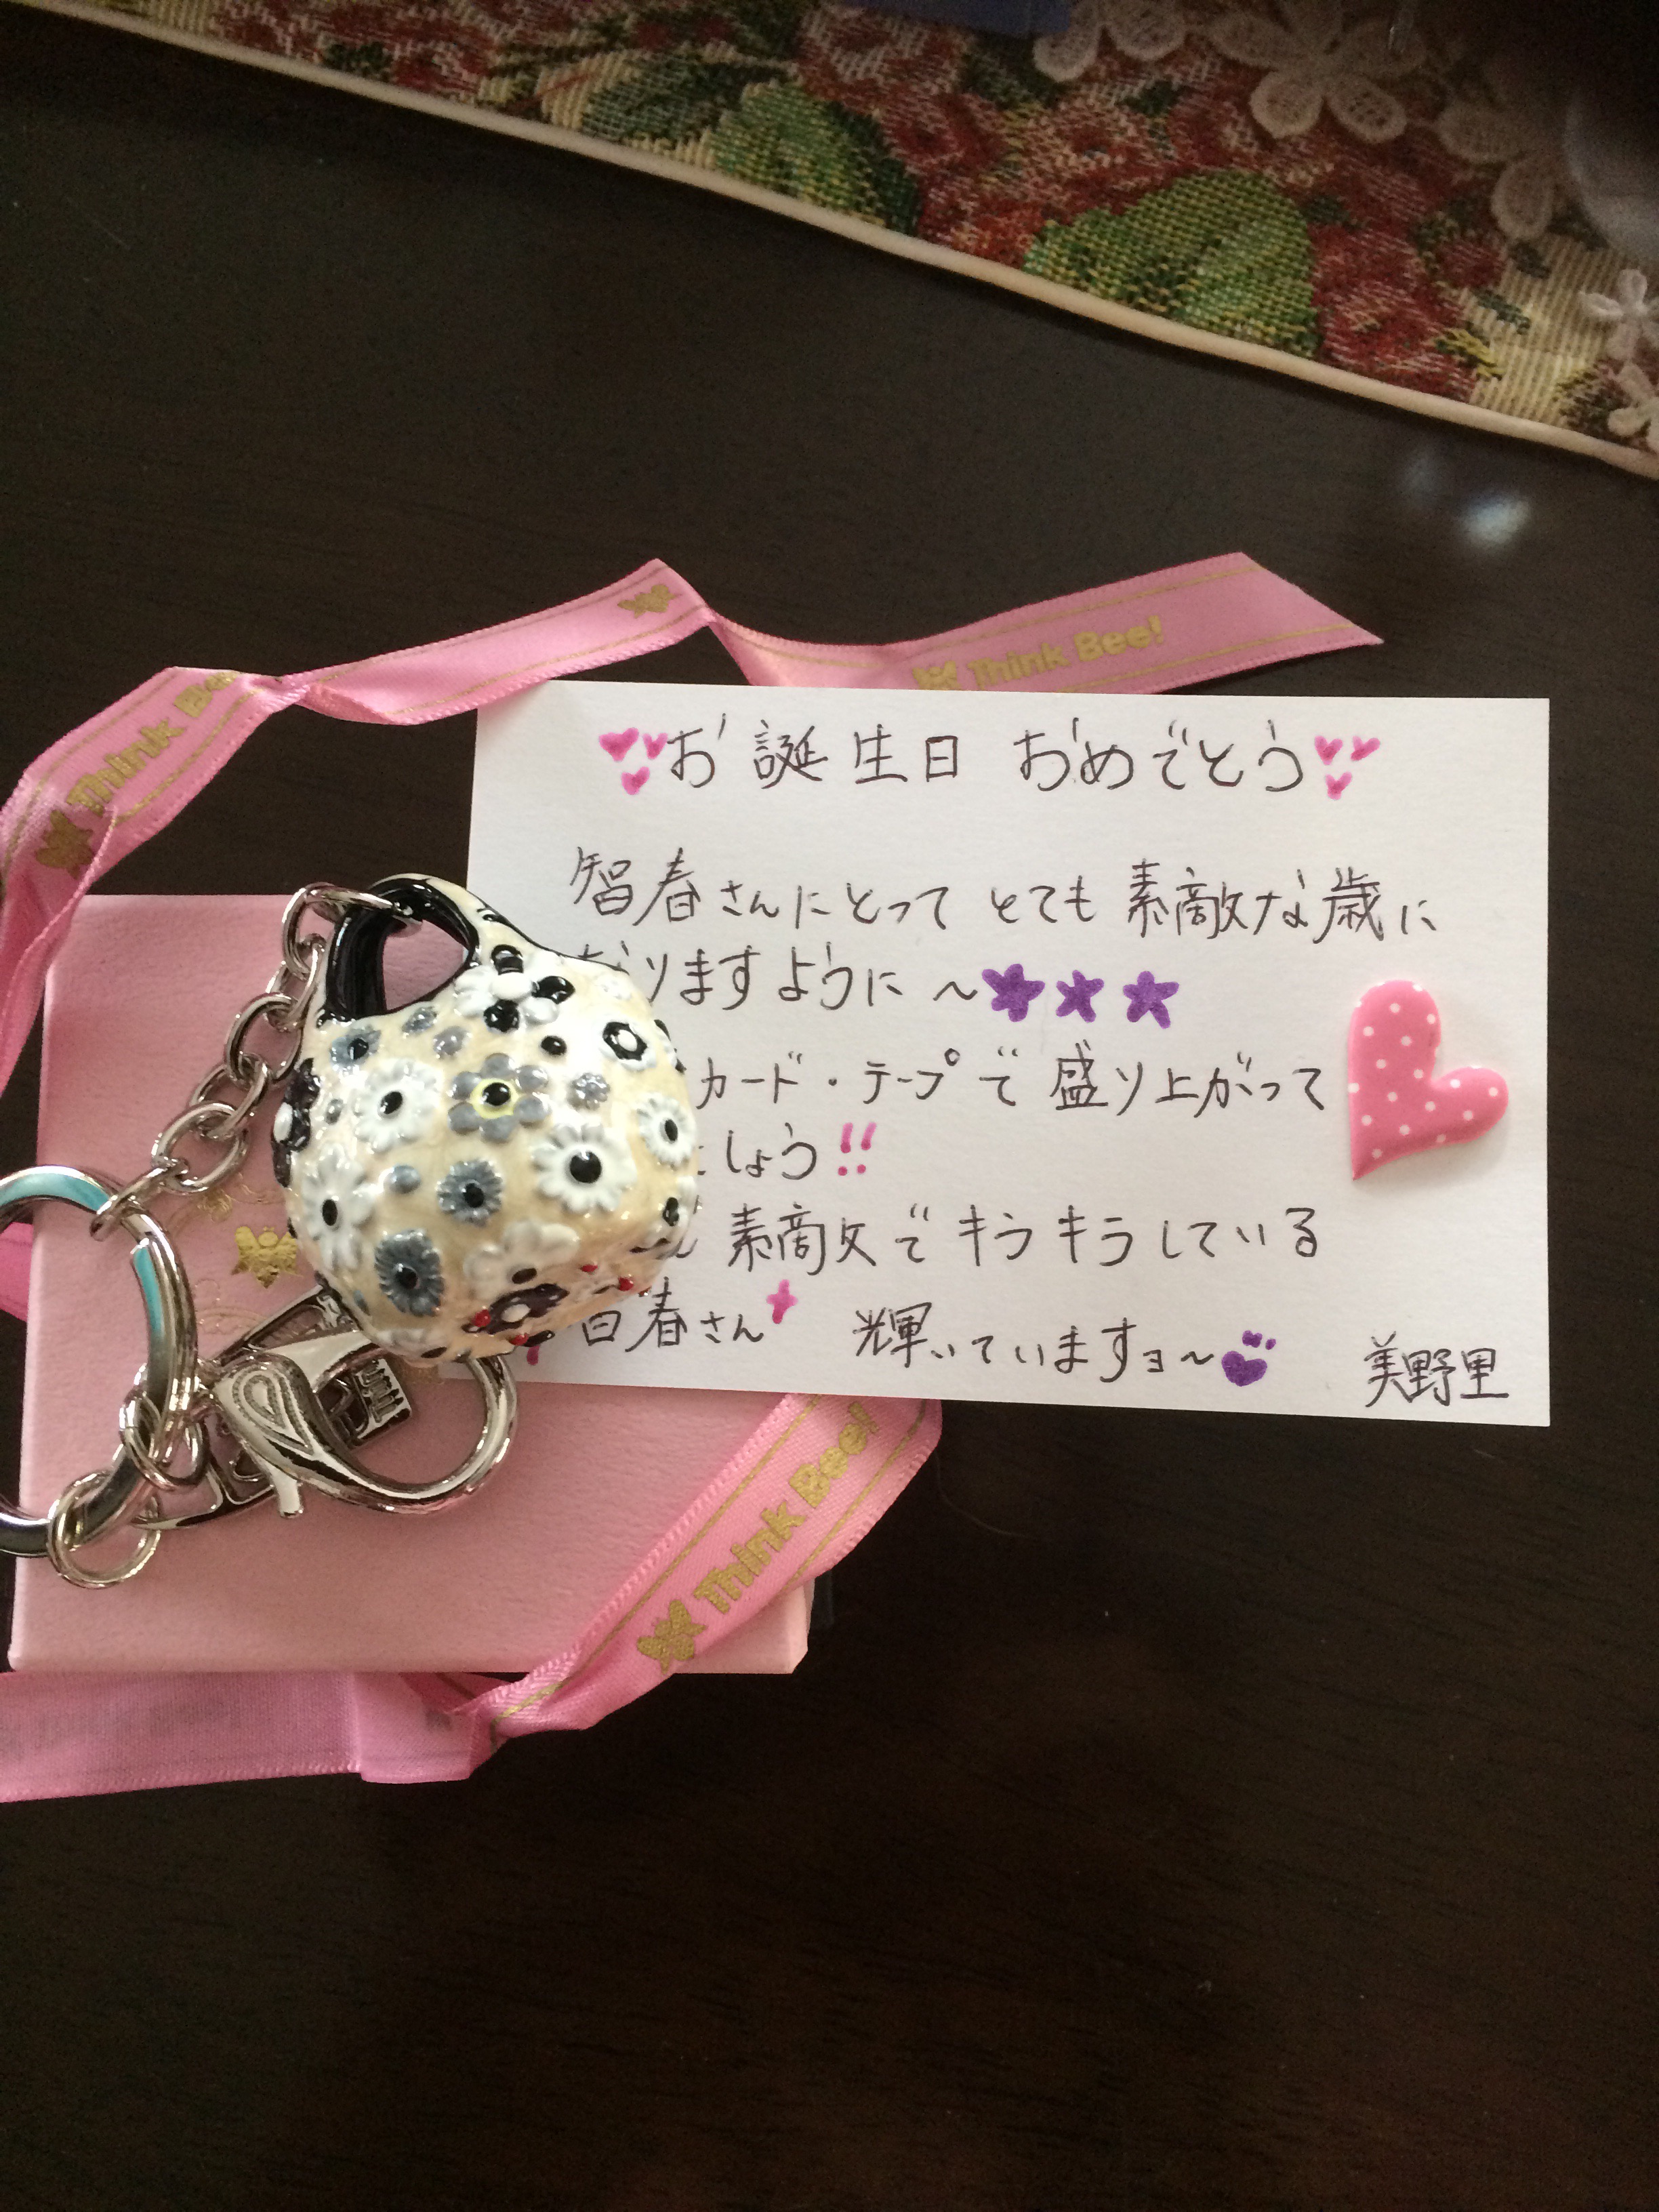 Think Bee!
Think Be
お誕生日 おめでとう
智春さんにとって とても 素敵な歳に
なりますように 〜
カード・テープで 盛り上がって
しょう!!
素敵でキラキラしている
智春さん 輝いていますョ〜
美野里
Think Bee!